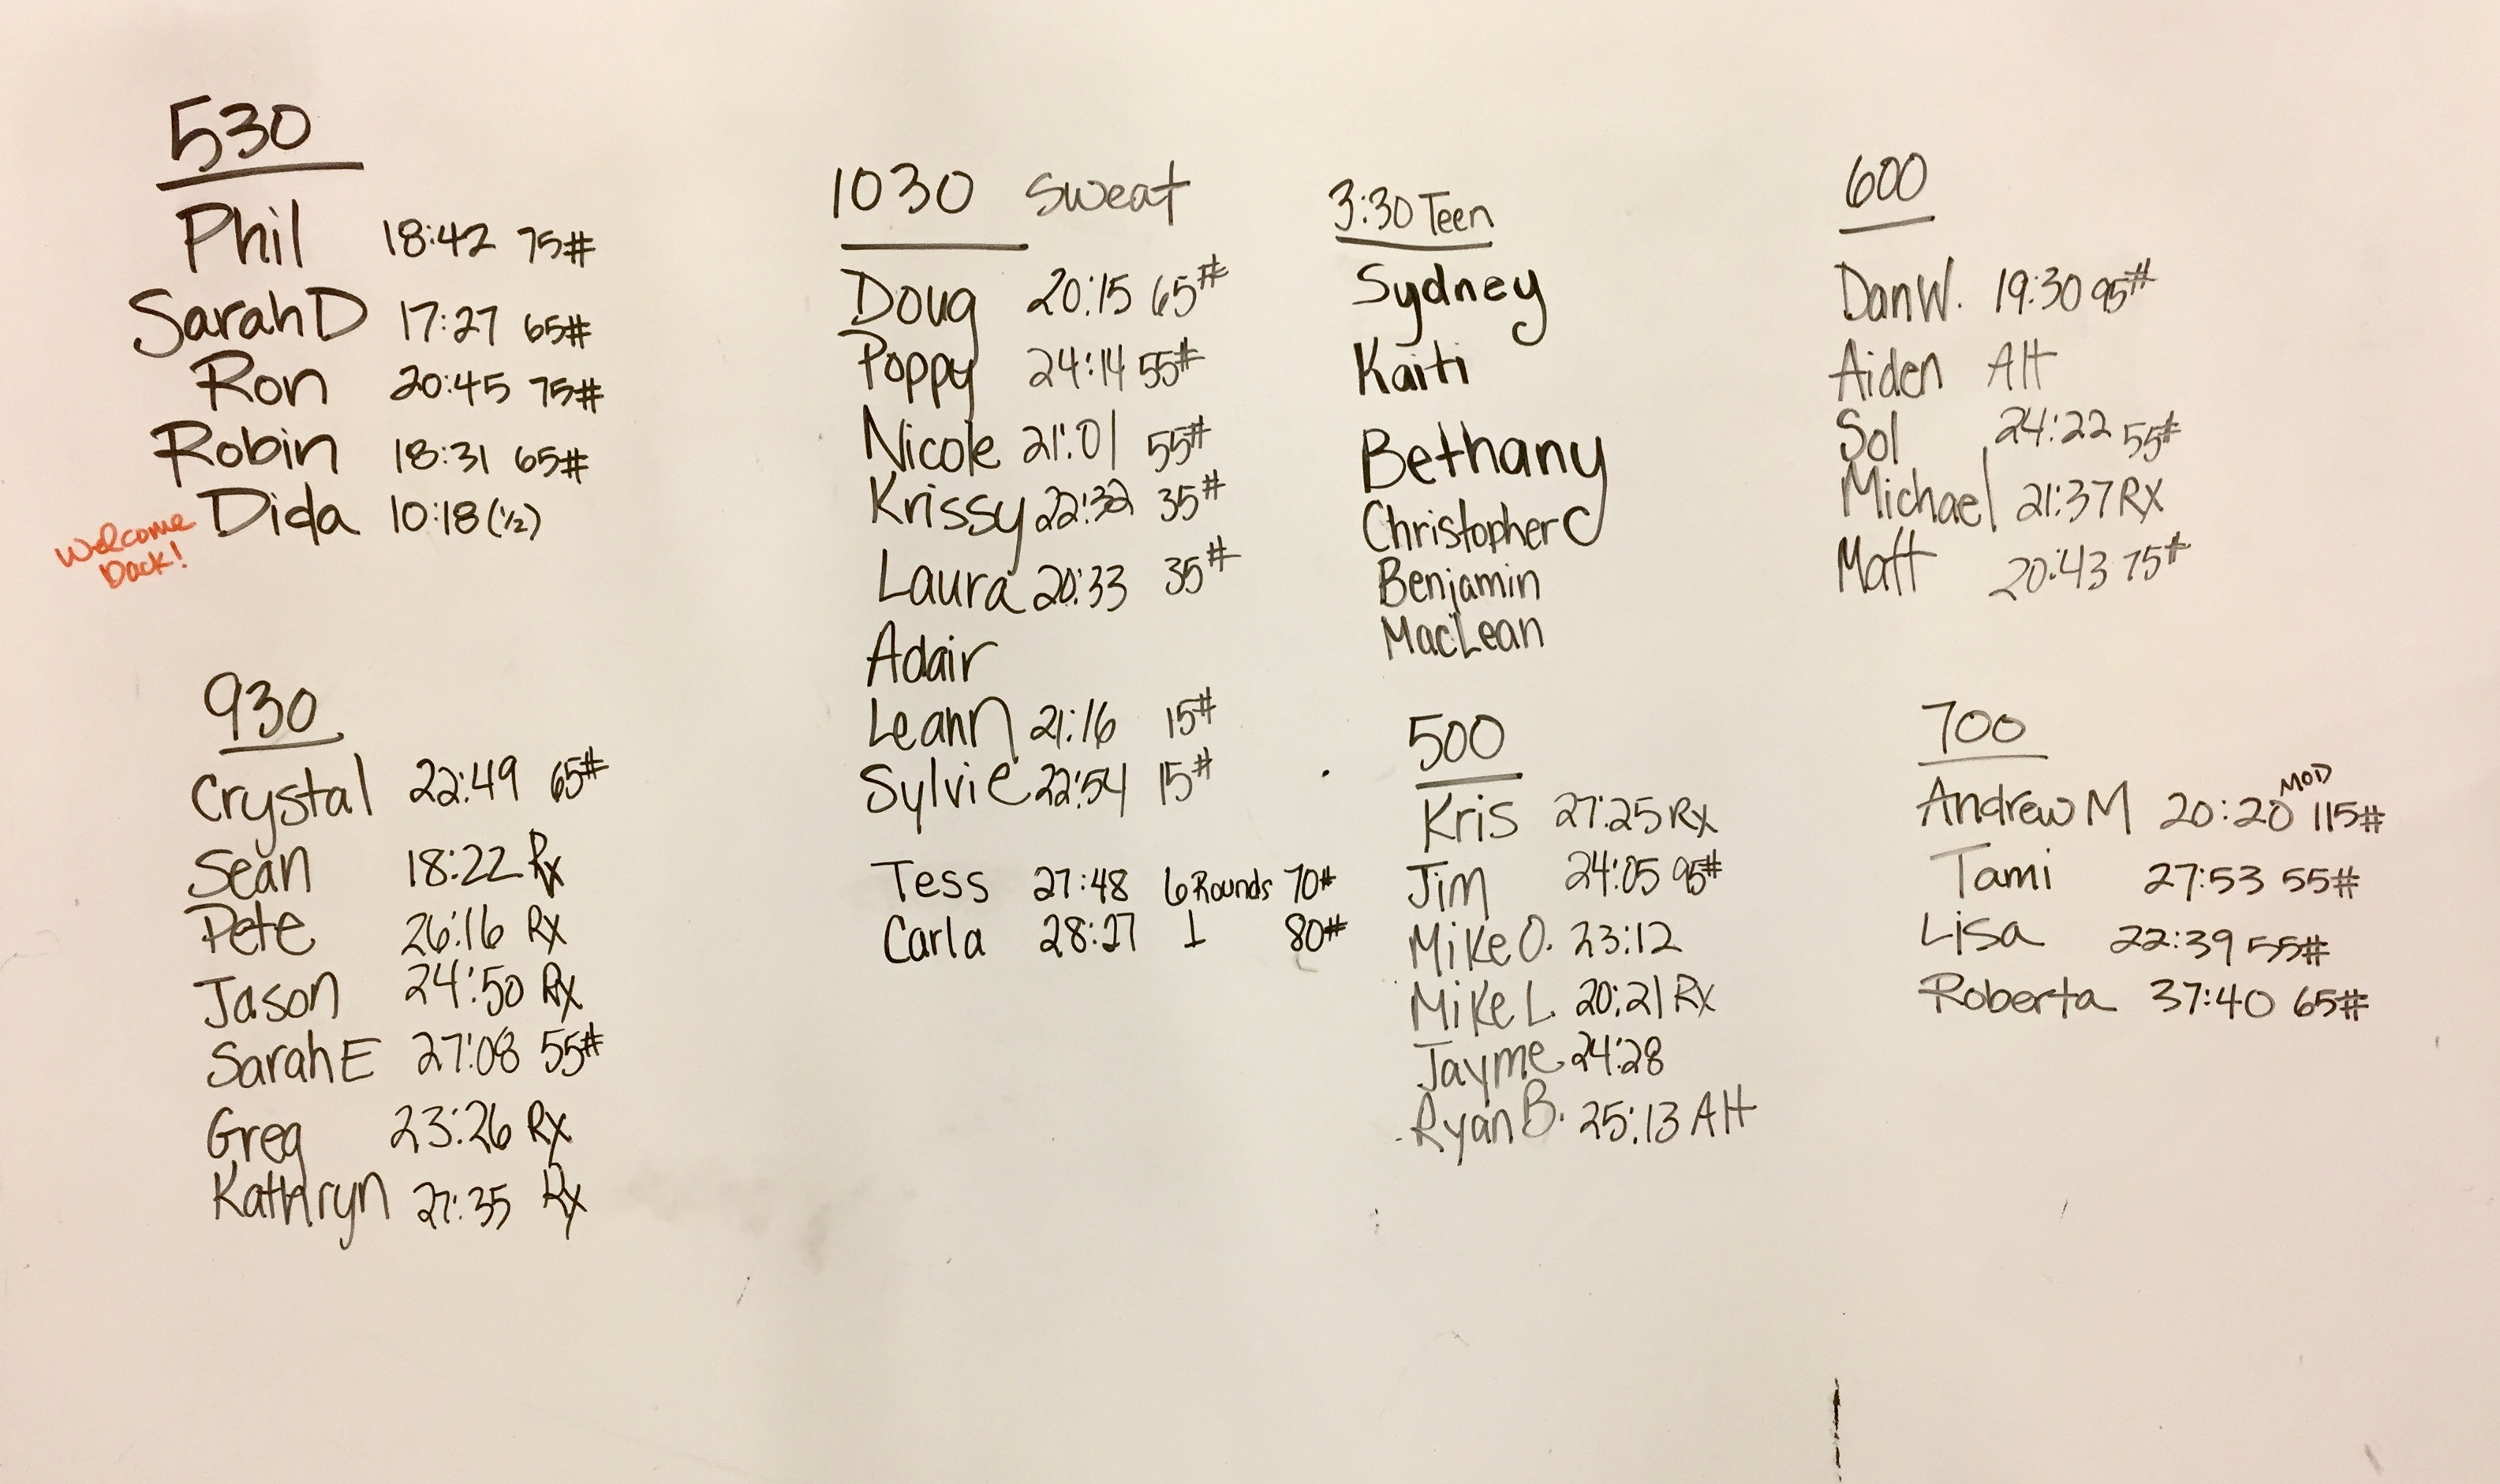 530
Phil 18:42 75#
Sarah D 17:27 65#
Ron 20:45 75#
Robin 18:31 65#
Dida 10:18 (1/2)
Welcome
back!
930
Crystal 22:49 65#
Sean 18:22 Rx
Pete 26:16 Rx
Jason 24:50 Rx
Sarah E 27:08 55#
Greg 23:26 Rx
Kathryn 27:35 Rx
1030 Sweat
Doug 20:15 65#
Poppy 24:14 55#
Nicole 21:01 55#
Krissy 22:32 35#
Laura 20:33 35#
Adair
Leann 21:16 15#
Sylvie 22:54 15#
Tess 27:48 6 Rounds 70#
Carla 28:27 ⊥ 80#
3:30 Teen
Sydney
Kaiti
Bethany
Christopher C
Benjamin
MacLean
500
Kris 27:25 RX
Jim 24:05 95#
Mike O. 23:12
Mike L. 20:21 RX
Jayme 24:28
Ryan B. 25:13 Alt
600
Dan W. 19:30 95#
Aiden Alt
Sol 24:22 55#
Michael 21:37 RX
Matt 20:43 75#
700
Andrew M 20:20 MOD 115#
Tami 27:53 55#
Lisa 22:39 55#
Roberta 37:40 65#